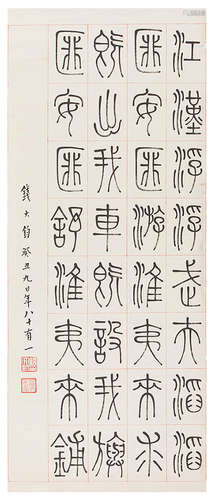 江漢浮浮武夫滔滔
匪安匪游淮夷來求
既出我車既設我旟
匪安匪舒淮夷來鋪
錢大鈞癸丑九日年八十有一